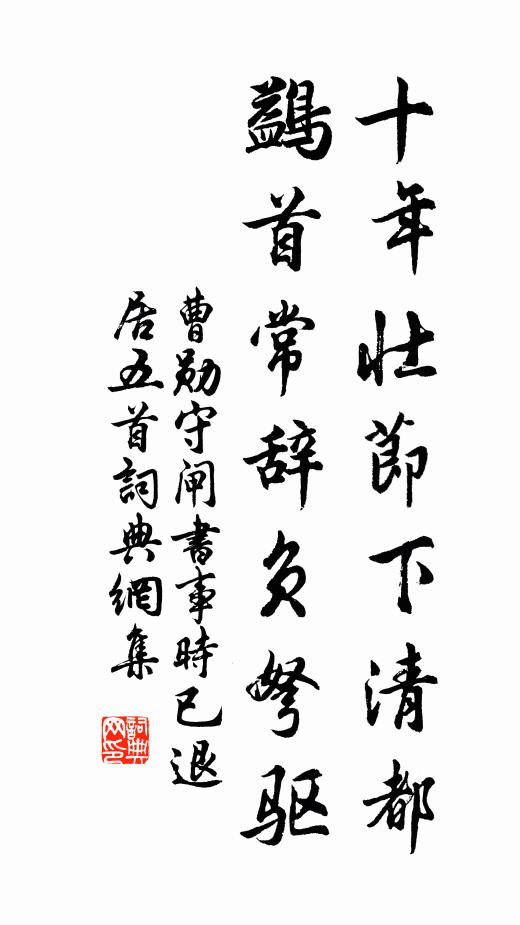 十年壮節下清都
鷁首常辞负弩驱
曹勋守闸書事時已退
居五首詞典網集
詞典
网印